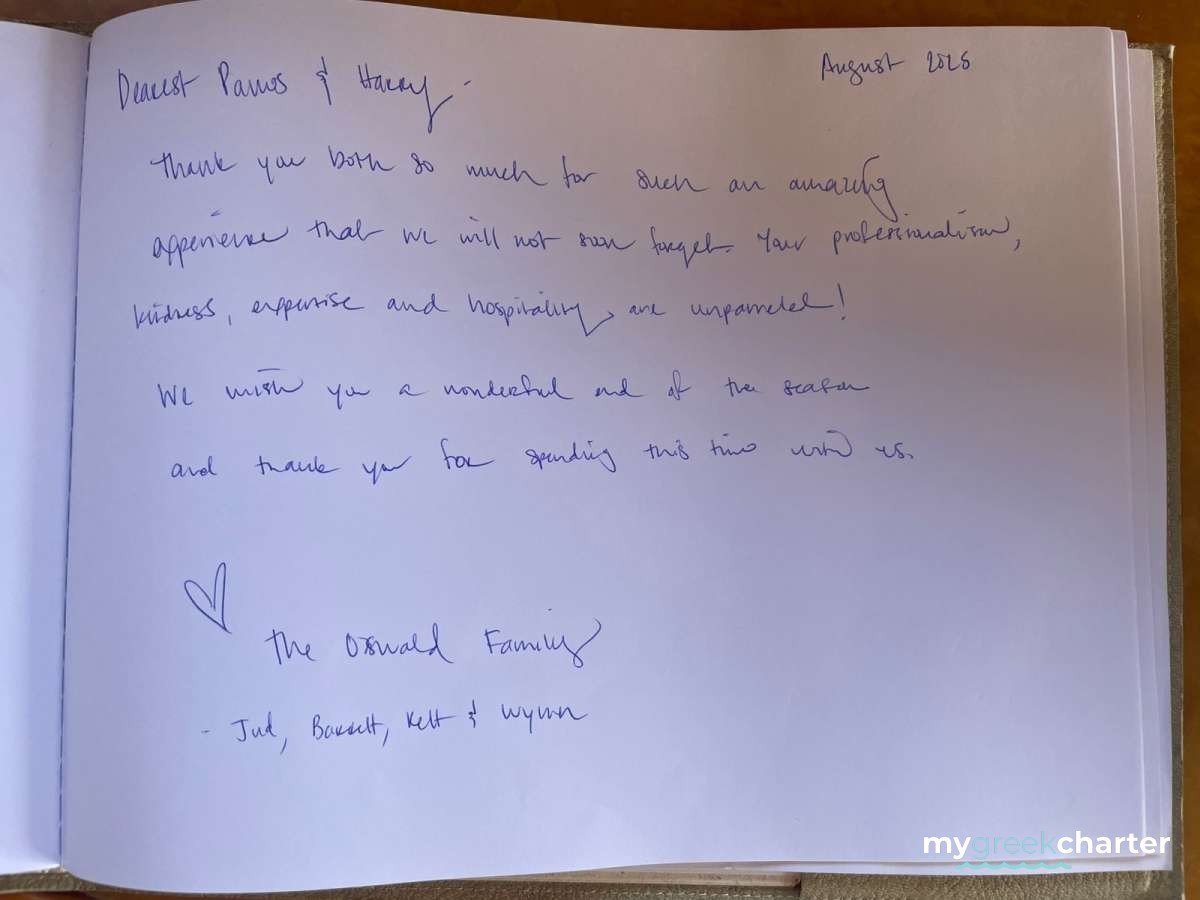 August 2025
Dearest Panos & Harry -
Thank you both so much for such an amazing
experience that we will not soon forget. Your professionalism,
kindness, expertise and hospitality are unparalleled!
We wish you a wonderful end of the season
and thank you for spending this time with us.
The Oswald Family
- Jud, Barrett, Kett & Wynn
mygreekcharter